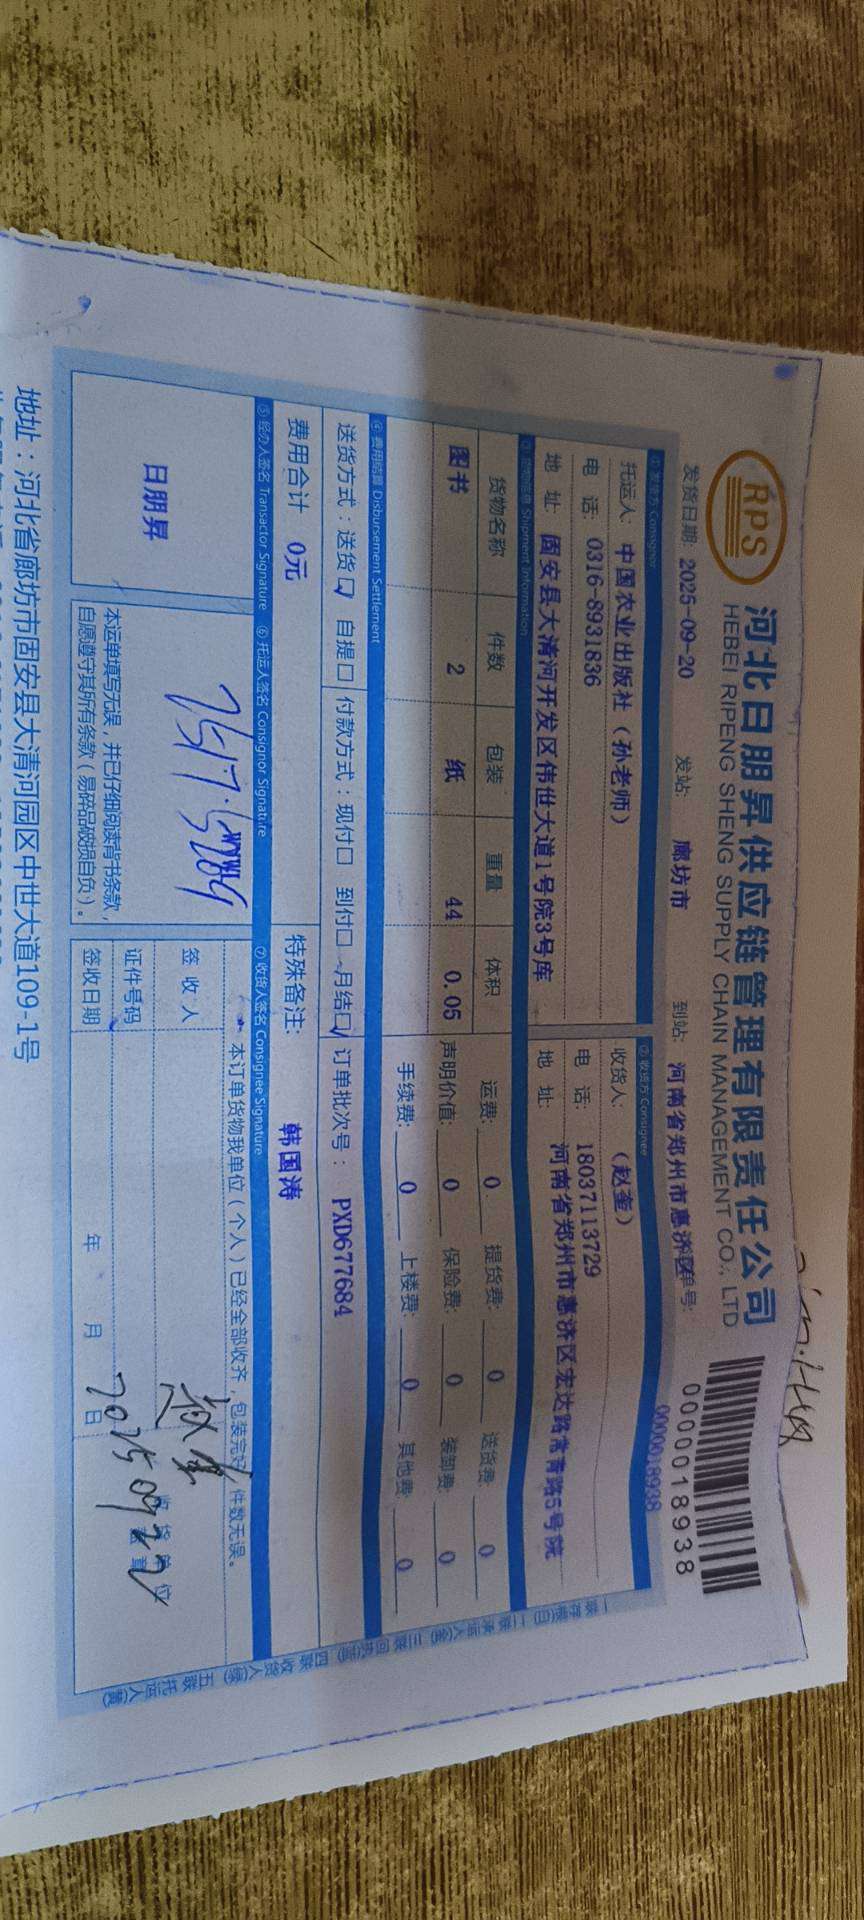 RPS
河北日朋昇供应链管理有限责任公司
HEBEI RIPENG SHENG SUPPLY CHAIN MANAGEMENT CO., LTD
0000018938
发货日期: 2025-09-20 发站: 廊坊市 到站: 河南省郑州市惠济区 单号: 0000018938
① 发货方 Consignor ② 收货方 Consignee
托运人: 中国农业出版社（孙老师） 收货人: （赵奎）
电 话: 0316-8931836 电 话: 18037113729
地 址: 固安县大清河开发区伟世大道1号院3号库 地 址: 河南省郑州市惠济区宏达路常青路5号院
③ 货物信息 Shipment Information
货物名称 件数 包装 重量 体积 运费: 0 提货费: 0 送货费: 0
图书 2 纸 44 0.05 声明价值: 0 保险费: 0 装卸费: 0
手续费: 0 上楼费: 0 其他费: 0
④ 费用结算 Disbursement Settlement
送货方式：送货☑ 自提□ 付款方式：现付□ 到付□ 月结☑ 订单批次号： PXD677684
费用合计 0元 特殊备注: 韩国涛
⑤ 经办人签名 Transactor Signature ⑥ 托运人签名 Consignor Signature ⑦ 收货人签名 Consignee Signature
日朋昇
本订单货物我单位（个人）已经全部收齐，包装完好，件数无误。
签 收 人 赵奎
证件号码
签收日期 年 月 日 2025 09 22
收货单位
本运单填写无误，并已仔细阅读背书条款，
自愿遵守其所有条款（易碎品破损自负）。
地址：河北省廊坊市固安县大清河园区中世大道109-1号